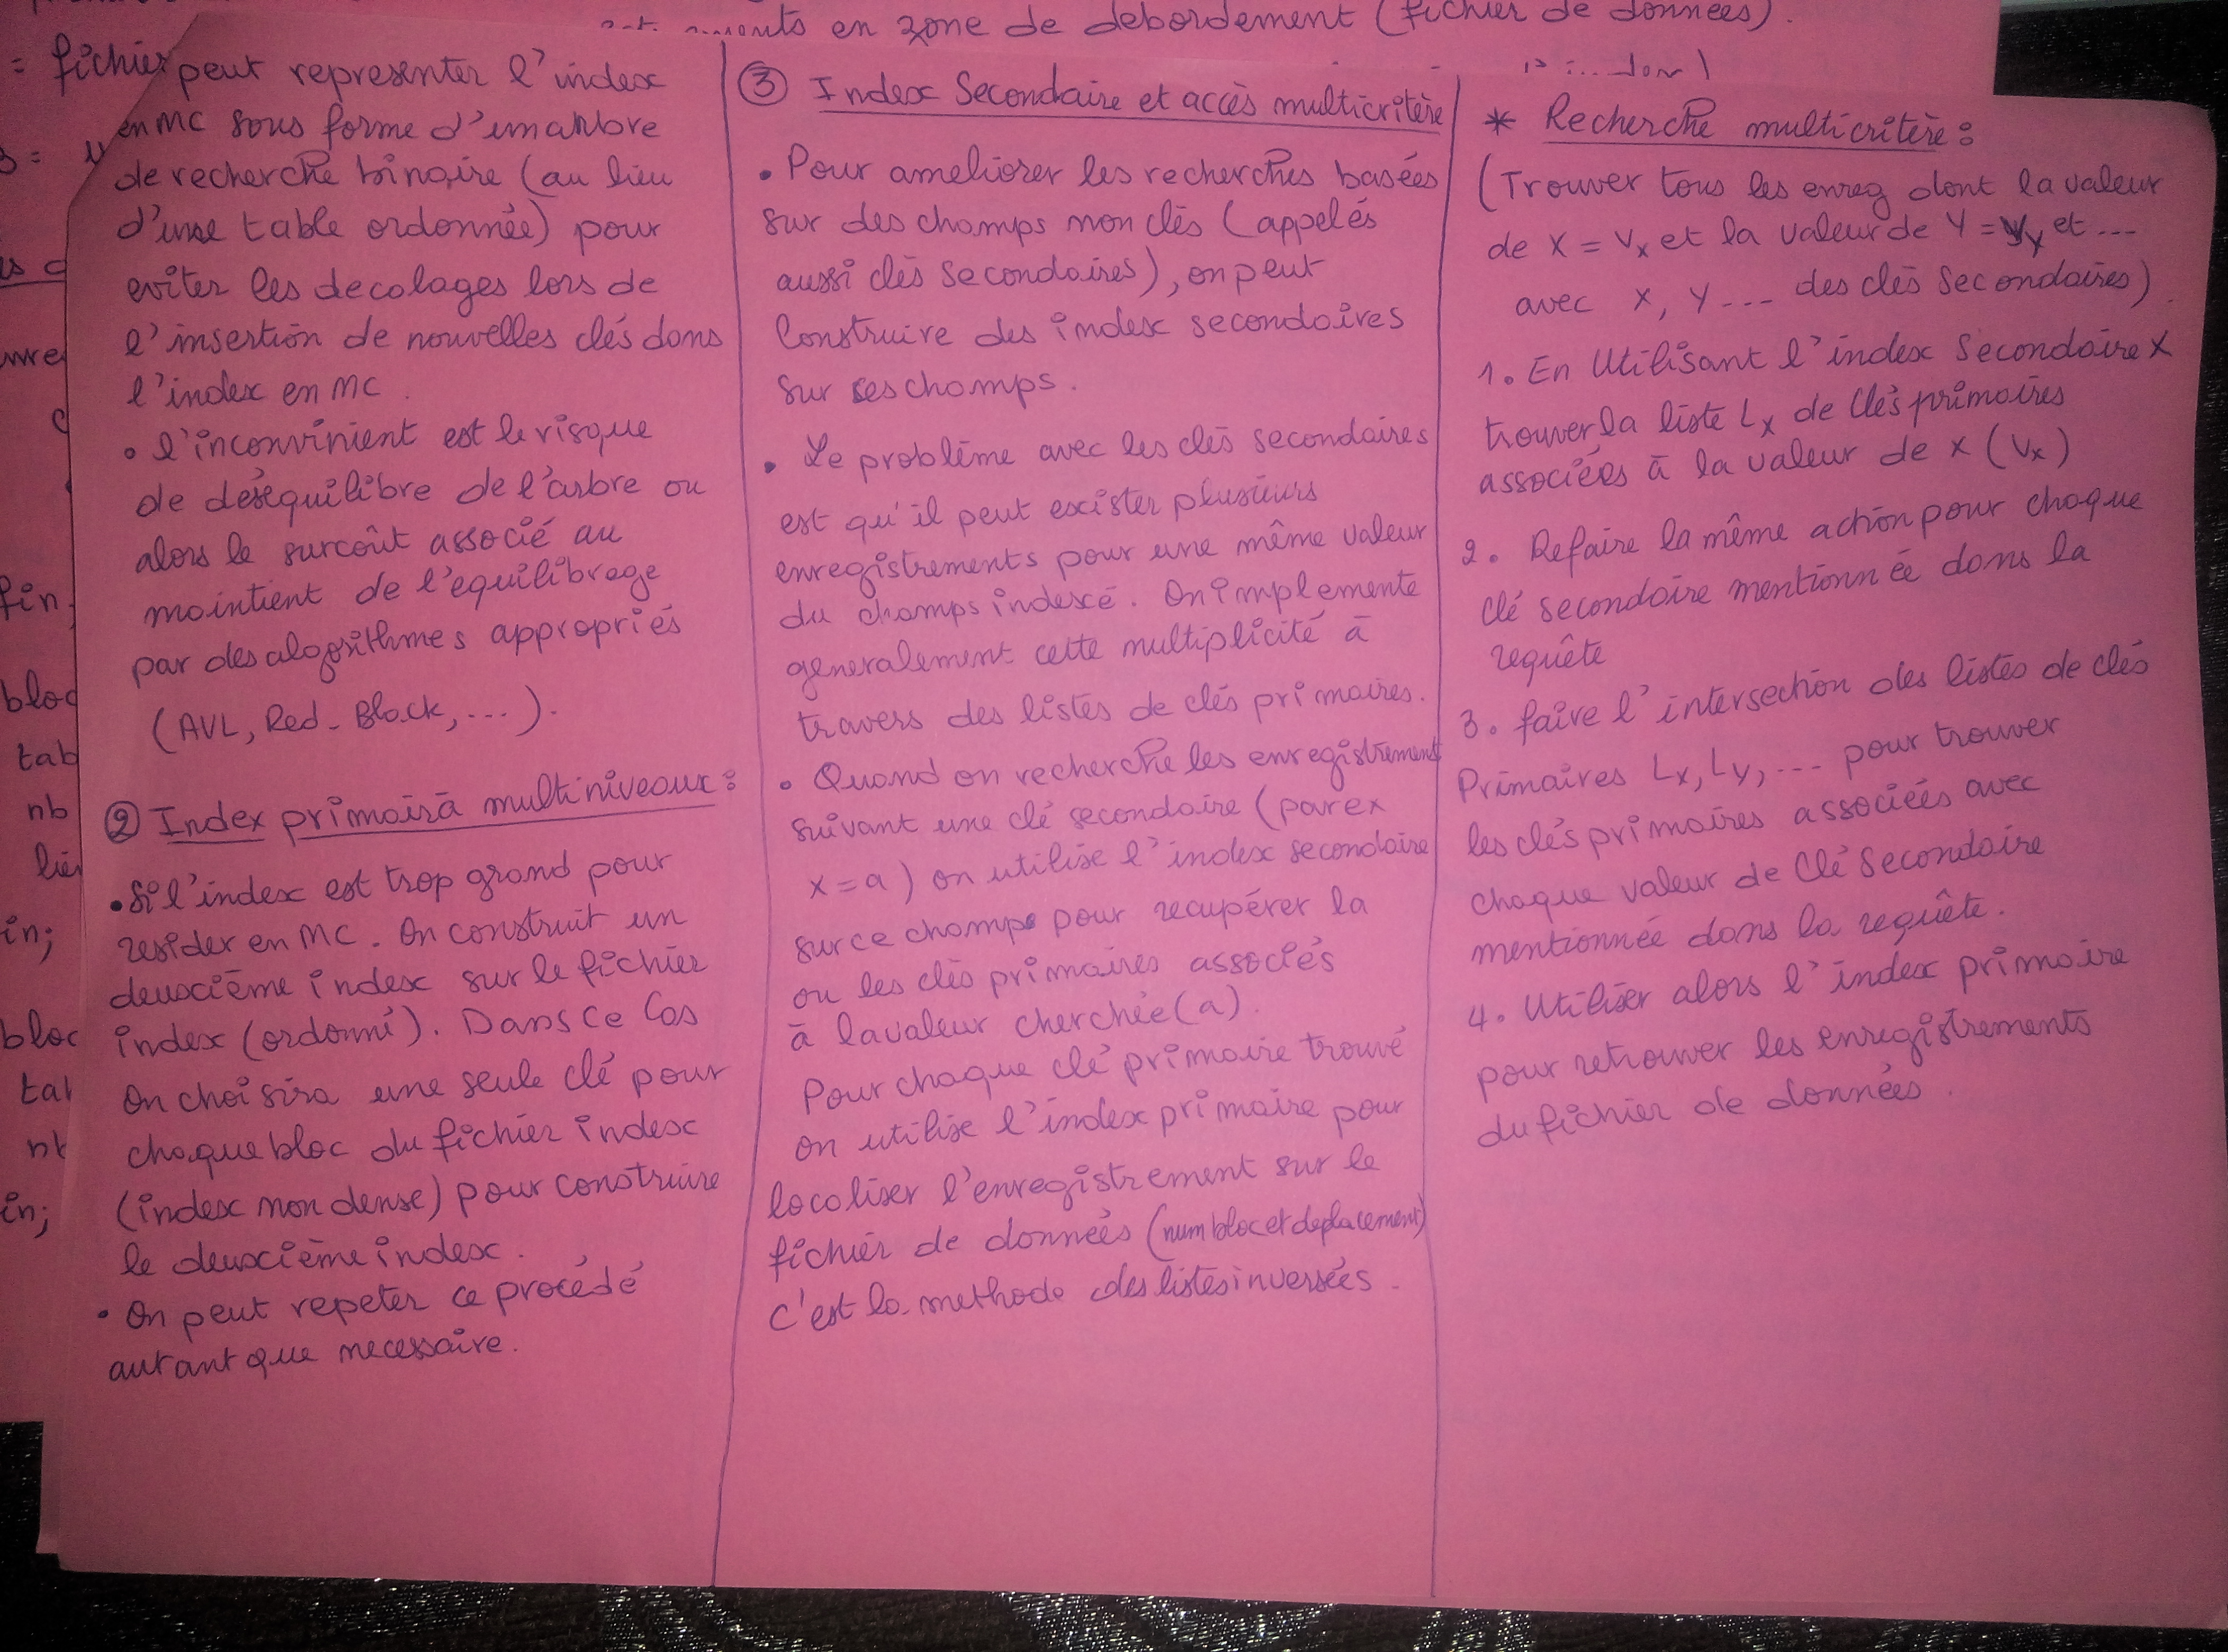 en zone de debordement (fichier de données).
= fichier
peut representer l'index
en MC sous forme d'un arbre
de recherche binaire (au lieu
d'une table ordonnée) pour
eviter les decolages lors de
l'insertion de nouvelles clés dans
l'index en MC.
• l'inconvinient est le risque
de deséquilibre de l'arbre ou
alors le surcoût associé au
maintient de l'equilibrage
par des alogorithmes appropriés
(AVL, Red-Black, ...).
② Index primairà multiniveaux :
• Si l'index est trop grand pour
resider en MC. On construit un
deuxcième index sur le fichier
index (ordonné). Dans ce Cas
On choisira une seule clé pour
chaque bloc du fichier index
(index non dense) pour construire
le deuxcième index.
• On peut repeter ce procédé
autant que necessaire.
③ Index Secondaire et accès multicritère
• Pour ameliorer les recherches basées
sur des champs non clés (appelés
aussi clés secondaires), on peut
Construire des index secondaires
sur ces champs.
• Le problème avec les clés secondaires
est qu'il peut exister plusieurs
enregistrements pour une même valeur
du champs indexé. On implemente
generalement cette multiplicité à
travers des listes de clés primaires.
• Quand on recherche les enregistrement
suivant une clé secondaire (par ex
x = a) on utilise l'index secondaire
sur ce champs pour recupérer la
ou les clés primaires associés
à la valeur cherchée (a).
Pour chaque clé primaire trouvé
on utilise l'index primaire pour
locoliser l'enregistrement sur le
fichier de données (num bloc et deplacement)
c'est la methode des listes inversées.
* Recherche multicritère :
(Trouver tous les enreg dont la valeur
de X = Vx et la valeur de Y = Vy et ...
avec X, Y ... des clés secondaires).
1. En Utilisant l'index Secondaire X
trouver la liste Lx de Clés primaires
associées à la valeur de x (Vx)
2. Refaire la même action pour chaque
clé secondaire mentionnée dans la
requête
3. faire l'intersection des listes de clés
Primaires Lx, Ly, ... pour trouver
les clés primaires associées avec
chaque valeur de Clé Secondaire
mentionnée dans la requête.
4. Utiliser alors l'index primaire
pour retrouver les enregistrements
du fichier de données.
fin;
bloc
tab
nb
in;
bloc
nb
in;